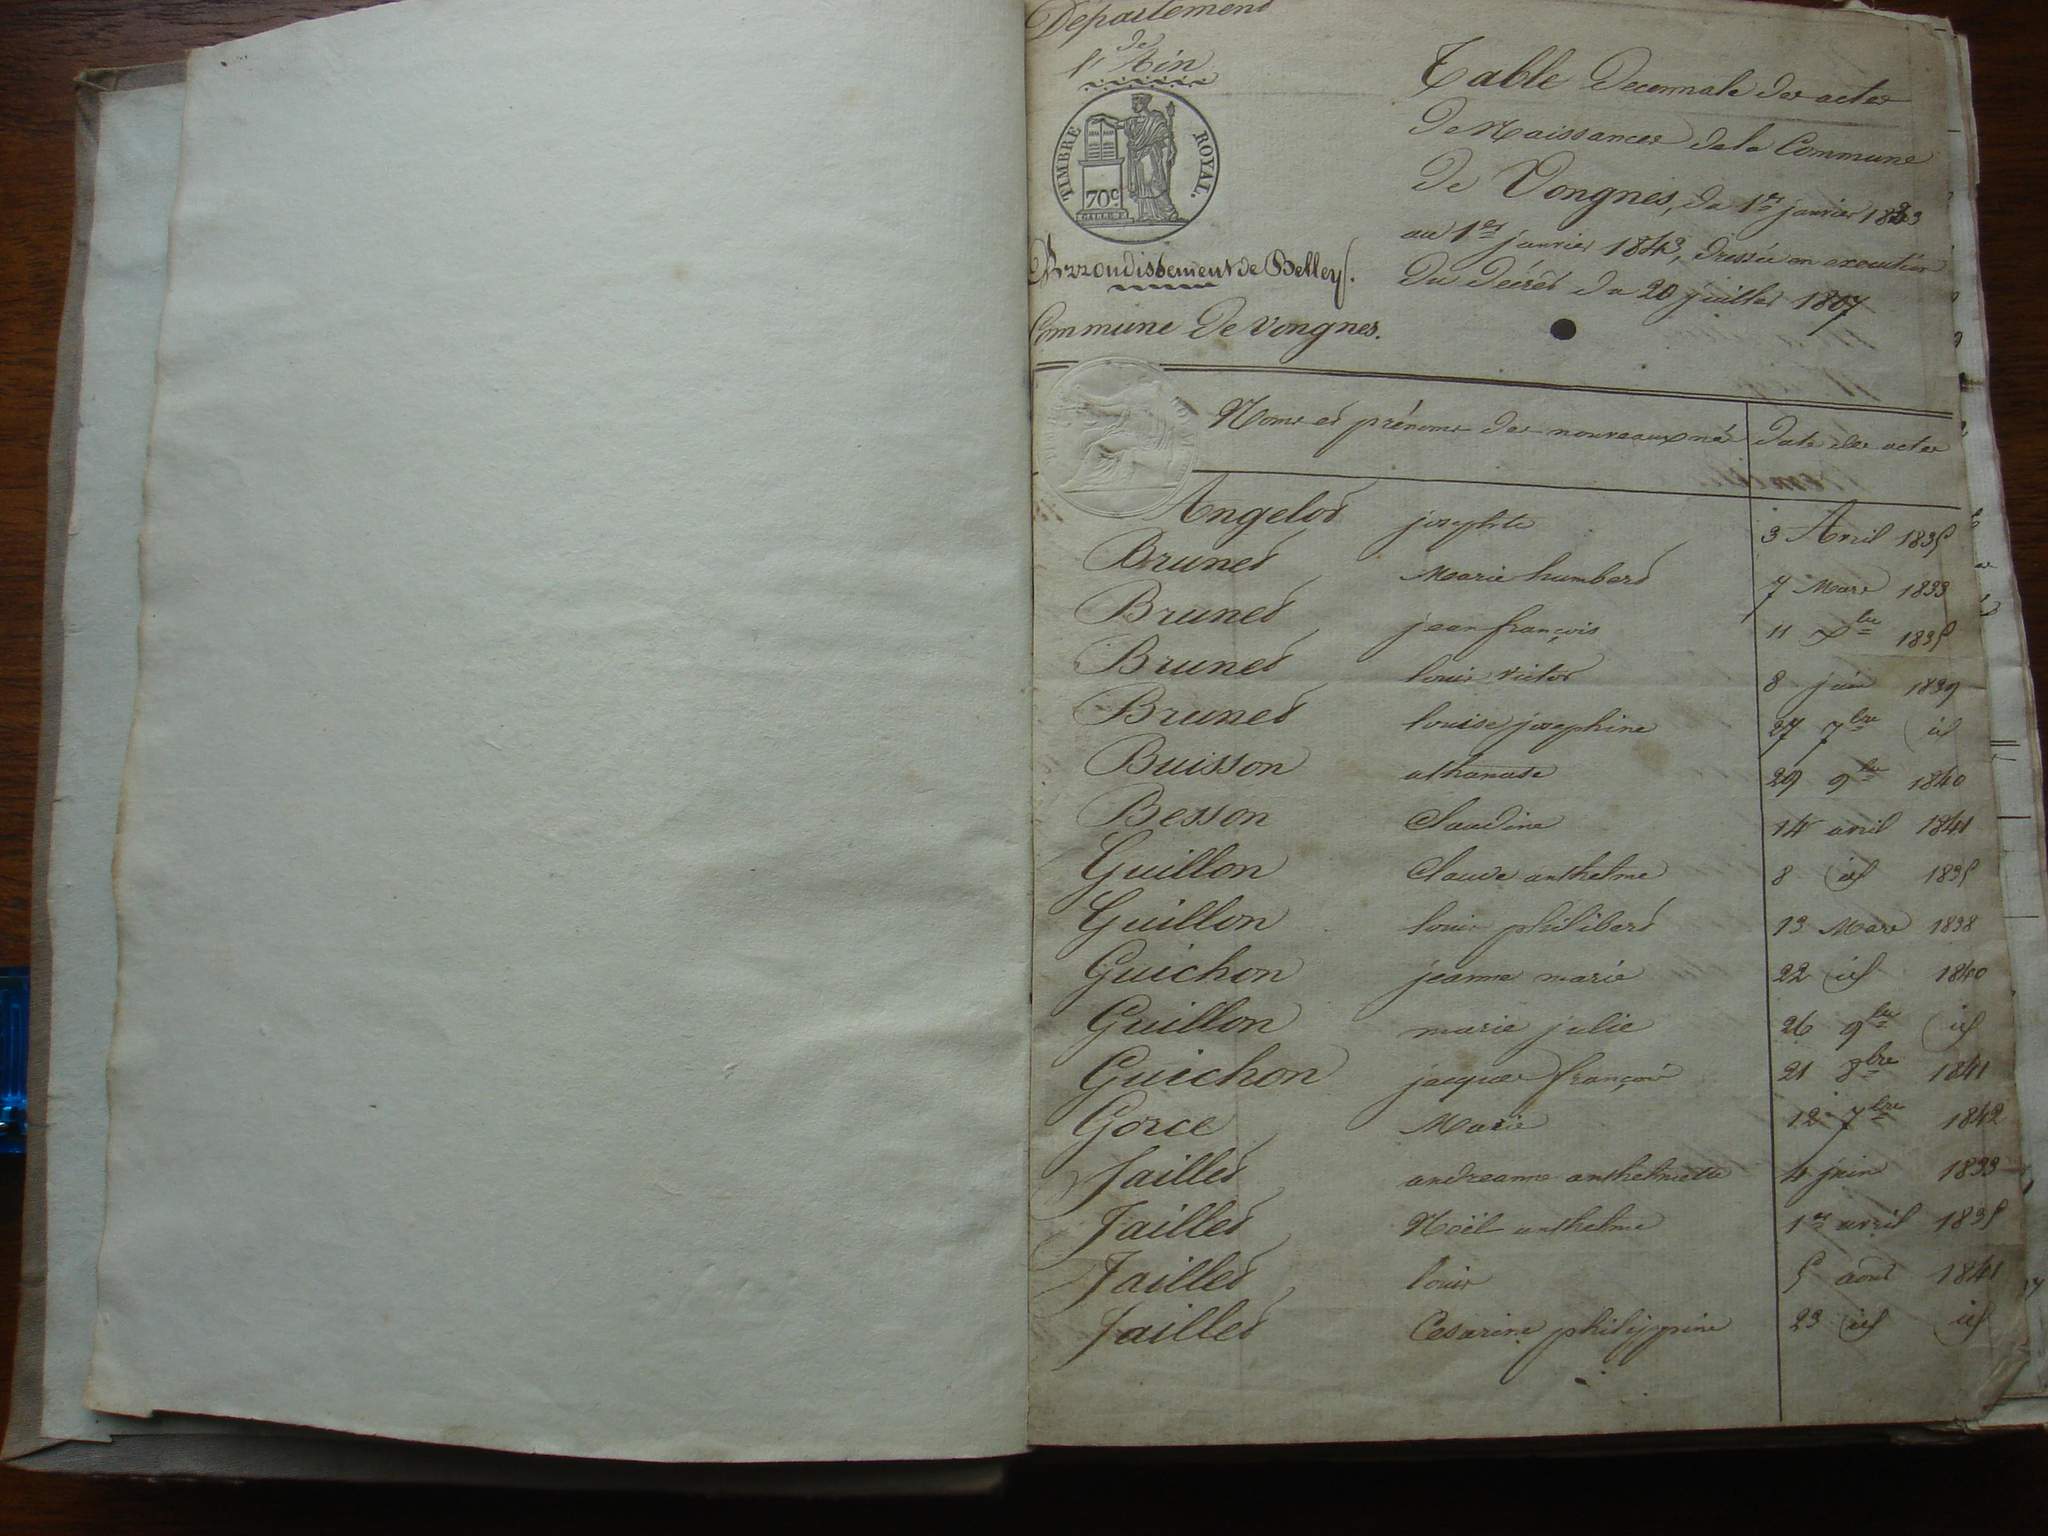 Département
de
l'Ain
TIMBRE ROYAL.
70c
Arrondissement de Belley.
Commune de Vongnes.
Table Décennale des actes
De Naissances de la Commune
de Vongnes, du 1er janvier 1833
au 1er janvier 1843, dressée en exécution
Du décret du 20 juillet 1807
Noms et prénoms des nouveaux nés Date des actes
Angelot josephte 3 Avril 1835
Brunet Marie humbert 7 Mars 1833
Brunet jean françois 11 Xbre 1835
Brunet louis victor 8 juin 1839
Brunet louise josephine 27 7bre id
Buisson athanase 29 9bre 1840
Besson Claudine 14 avril 1841
Guillon Claude anthelme 8 id 1835
Guillon louis philibert 13 Mars 1838
Guichon jeanne marie 22 id 1840
Guillon marie julie 26 9bre id
Guichon jacques françois 21 8bre 1841
Gorce Marie 12 7bre 1842
Jaillet andreanne anthelmette 4 juin 1833
Jaillet Noël anthelme 1er avril 1835
Jaillet louis 5 aout 1841
Jaillet Cesarine philippine 23 id id